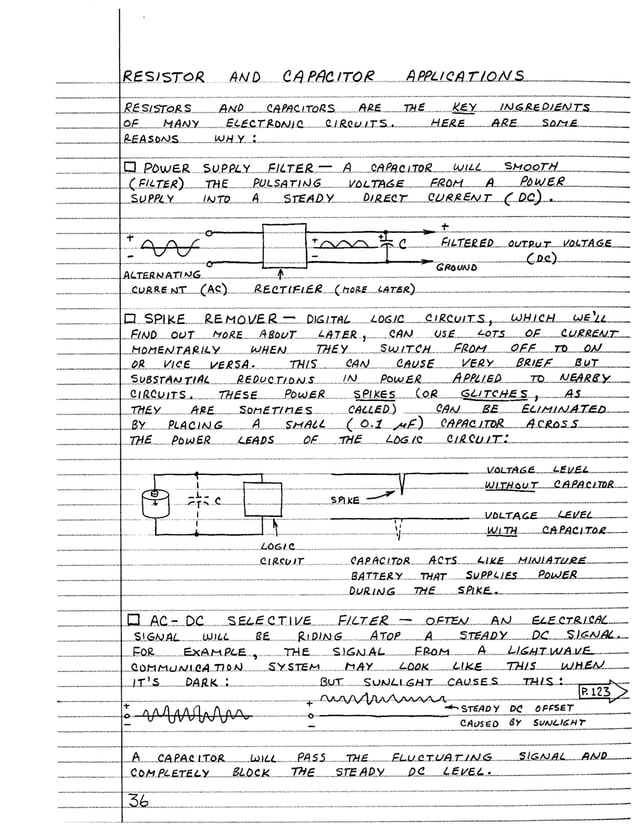 RESISTOR AND CAPACITOR APPLICATIONS
RESISTORS AND CAPACITORS ARE THE KEY INGREDIENTS
OF MANY ELECTRONIC CIRCUITS. HERE ARE SOME
REASONS WHY:
□ POWER SUPPLY FILTER — A CAPACITOR WILL SMOOTH
(FILTER) THE PULSATING VOLTAGE FROM A POWER
SUPPLY INTO A STEADY DIRECT CURRENT (DC).
+
−
+
C
+
FILTERED OUTPUT VOLTAGE
(DC)
GROUND
ALTERNATING
CURRENT (AC)
RECTIFIER (MORE LATER)
□ SPIKE REMOVER — DIGITAL LOGIC CIRCUITS, WHICH WE'LL
FIND OUT MORE ABOUT LATER, CAN USE LOTS OF CURRENT
MOMENTARILY WHEN THEY SWITCH FROM OFF TO ON
OR VICE VERSA. THIS CAN CAUSE VERY BRIEF BUT
SUBSTANTIAL REDUCTIONS IN POWER APPLIED TO NEARBY
CIRCUITS. THESE POWER SPIKES (OR GLITCHES, AS
THEY ARE SOMETIMES CALLED) CAN BE ELIMINATED
BY PLACING A SMALL (0.1 µF) CAPACITOR ACROSS
THE POWER LEADS OF THE LOGIC CIRCUIT:
C
LOGIC
CIRCUIT
SPIKE
VOLTAGE LEVEL
WITHOUT CAPACITOR
VOLTAGE LEVEL
WITH CAPACITOR
CAPACITOR ACTS LIKE MINIATURE
BATTERY THAT SUPPLIES POWER
DURING THE SPIKE.
□ AC-DC SELECTIVE FILTER — OFTEN AN ELECTRICAL
SIGNAL WILL BE RIDING ATOP A STEADY DC SIGNAL.
FOR EXAMPLE, THE SIGNAL FROM A LIGHTWAVE
COMMUNICATION SYSTEM MAY LOOK LIKE THIS WHEN
IT'S DARK: BUT SUNLIGHT CAUSES THIS:
P. 123
+
0
−
+
0
−
STEADY DC OFFSET
CAUSED BY SUNLIGHT
A CAPACITOR WILL PASS THE FLUCTUATING SIGNAL AND
COMPLETELY BLOCK THE STEADY DC LEVEL.
36